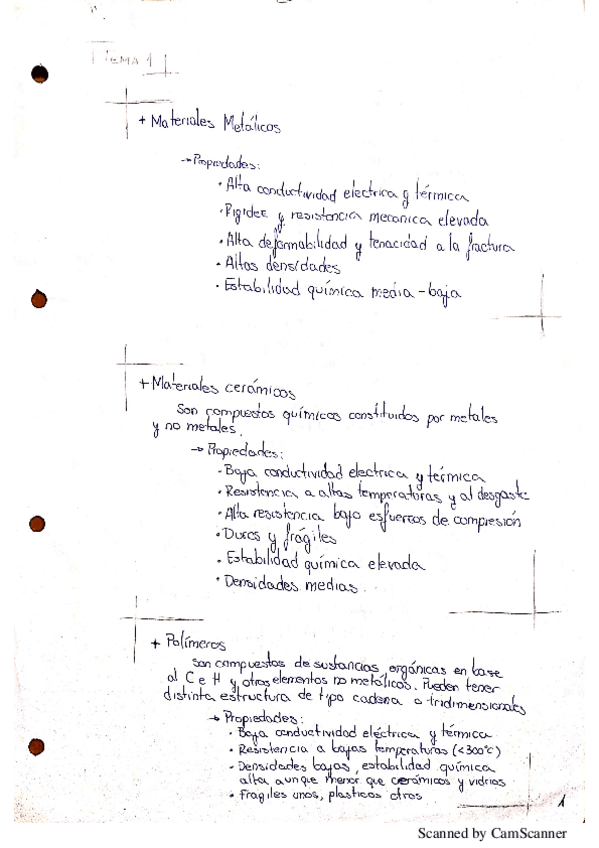 TEMA 1
+ Materiales Metálicos
→ Propiedades:
· Alta conductividad electrica y térmica
· Rigidez y resistencia mecanica elevada
· Alta deformabilidad y tenacidad a la fractura
· Altas densidades
· Estabilidad química media - baja
+ Materiales cerámicos
Son compuestos químicos constituidos por metales
y no metales.
→ Propiedades:
· Baja conductividad electrica y térmica
· Resistencia a altas temperaturas y al desgaste
· Alta resistencia bajo esfuerzos de compresión
· Duros y frágiles
· Estabilidad química elevada
· Densidades medias.
+ Polímeros
Son compuestos de sustancias orgánicas en base
al C e H y otros elementos no metálicos. Pueden tener
distinta estructura de tipo cadena o tridimensionales
→ Propiedades:
· Baja conductividad eléctrica y térmica
· Resistencia a bajas temperaturas (<300°C)
· Densidades bajas, estabilidad química
alta aunque menor que cerámicos y vidrios
· Fragiles unos, plasticos otros
1
Scanned by CamScanner